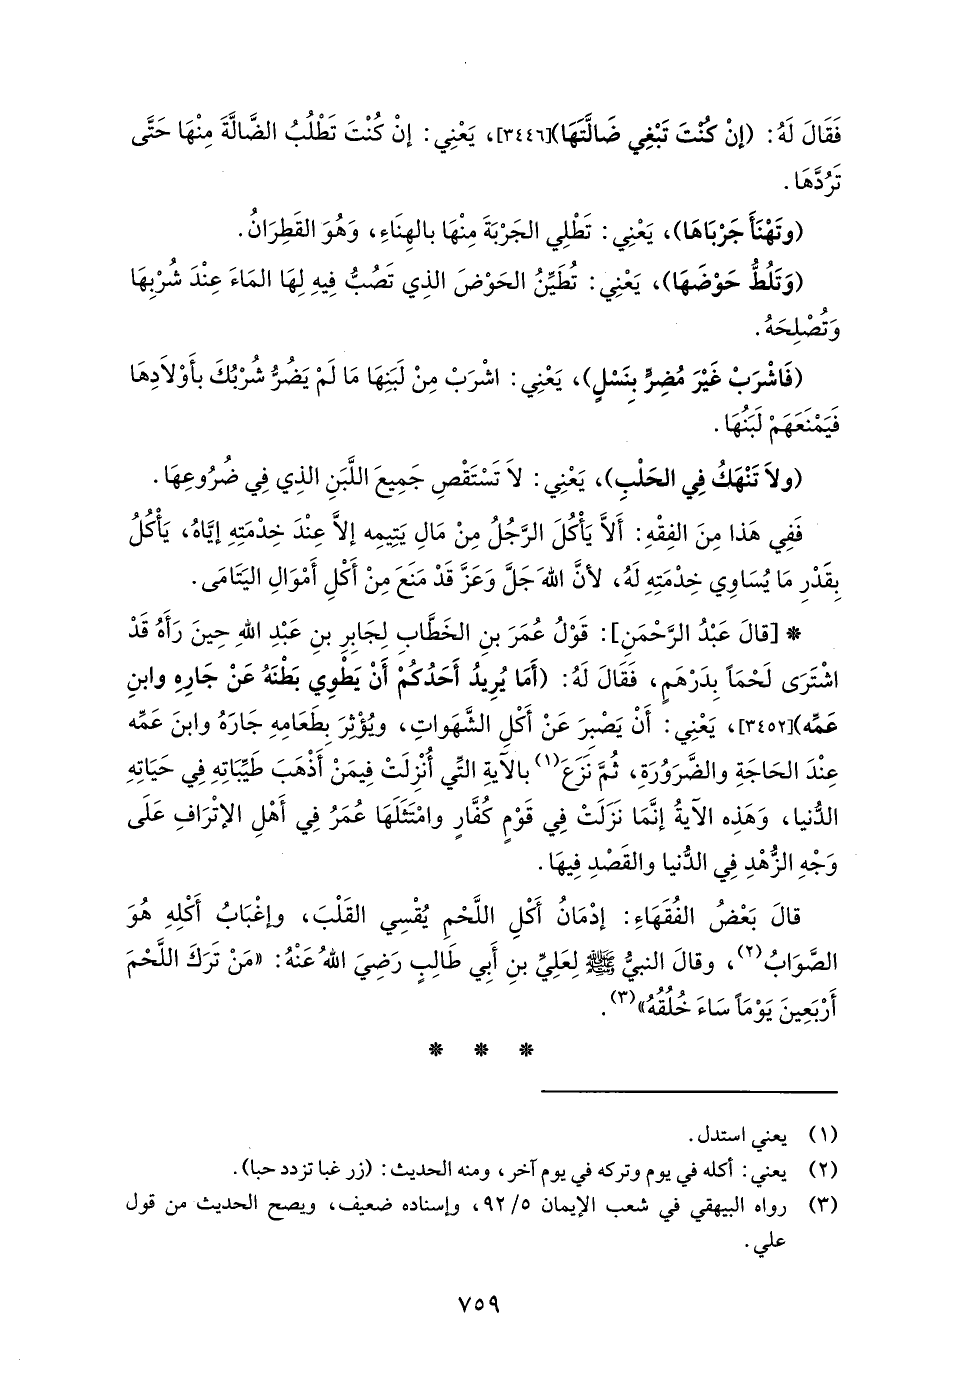 فَقَالَ لَهُ: (إنْ كُنْتَ تَبْغِي ضَالَّتَهَا)[٣٤٤٦]، يَعْنِي: إنْ كُنْتَ تَطْلُبُ الضَّالَّةَ مِنْهَا حَتَّى
تَرُدَّهَا.
(وتَهْنَأَ جَرْبَاهَا)، يَعْنِي: تَطْلِي الجَرْبَةَ مِنْهَا بالهِنَاءِ، وَهُوَ القَطِرَانُ.
(وَتَلُطُّ حَوْضَهَا)، يَعْنِي: تُطَيِّنُ الحَوْضَ الذِي تَصُبُّ فِيهِ لِهَا المَاءَ عِنْدَ شُرْبِهَا
وَتُصْلِحَهُ.
(فَاشْرَبْ غَيْرَ مُضِرٍّ بِنَسْلٍ)، يَعْنِي: اشْرَبْ مِنْ لَبَنِهَا مَا لَمْ يَضُرُّ شُرْبُكَ بأَوْلاَدِهَا
فَيَمْنَعَهُمْ لَبَنُهَا.
(ولاَ تَنْهَكُ فِي الحَلْبِ)، يَعْنِي: لاَ تَسْتَقْصِ جَمِيعَ اللَّبَنِ الذِي فِي ضُرُوعِهَا.
فَفِي هَذا مِنَ الفِقْهِ: أَلاَّ يَأْكُلَ الرَّجُلُ مِنْ مَالِ يَتِيمِه إلاَّ عِنْدَ خِدْمَتِهِ إيَّاهُ، يَأْكُلُ
بِقَدْرِ مَا يُسَاوِي خِدْمَتِهِ لَهُ، لأنَّ اللهَ جَلَّ وَعَزَّ قَدْ مَنَعَ مِنْ أَكْلِ أَمْوَالِ اليَتَامَى.
* [قالَ عَبْدُ الرَّحْمَنِ]: قَوْلُ عُمَرَ بنِ الخَطَّابِ لِجَابِرِ بنِ عَبْدِ اللهِ حِينَ رَأَهُ قَدْ
اشْتَرَى لَحْماً بِدَرْهَمٍ، فَقَالَ لَهُ: (أَمَا يُرِيدُ أَحَدُكُمْ أَنْ يَطْوِي بَطْنَهُ عَنْ جَارِهِ وابنِ
عَمِّه)[٣٤٥٢]، يَعْنِي: أَنْ يَصْبِرَ عَنْ أَكْلِ الشَّهَواتِ، ويُؤْثِرَ بِطَعَامِهِ جَارَهُ وابنَ عَمِّه
عِنْدَ الحَاجَةِ والضَّرُورَةِ، ثُمَّ نَزَعَ(١) بالآيَةِ التَّي أُنْزِلَتْ فِيمَنْ أَذْهَبَ طَيِّبَاتِهِ فِي حَيَاتِهِ
الدُّنيا، وَهَذِه الآيَةُ إنَّمَا نَزَلَتْ فِي قَوْمٍ كُفَّارٍ وامْتَثَلَهَا عُمَرُ فِي أَهْلِ الإتْرَافِ عَلَى
وَجْهِ الزُّهْدِ فِي الدُّنيا والقَصْدِ فِيهَا.
قالَ بَعْضُ الفُقَهَاءِ: إدْمَانُ أَكْلِ اللَّحْمِ يُقْسِي القَلْبَ، وإغْبَابُ أَكْلِهِ هُوَ
الصَّوَابُ(٢)، وقالَ النبيُّ ﷺ لِعَلِيِّ بنِ أَبي طَالِبٍ رَضِيَ اللهُ عَنْهُ: «مَنْ تَرَكَ اللَّحْمَ
أَرْبَعِينَ يَوْمَاً سَاءَ خُلُقُهُ»(٣).
* * *
(١) يعني استدل.
(٢) يعني: أكله في يوم وتركه في يوم آخر، ومنه الحديث: (زر غبا تزدد حبا).
(٣) رواه البيهقي في شعب الإيمان ٩٢/٥، وإسناده ضعيف، ويصح الحديث من قول
علي.
٧٥٩